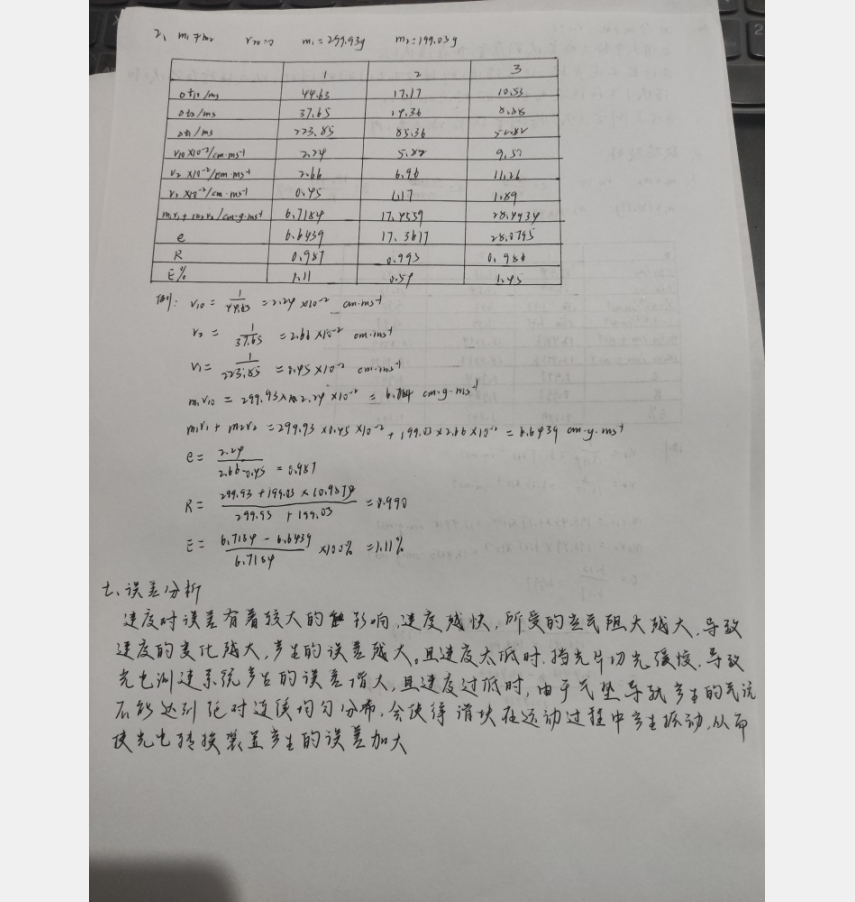 2、m₁≠m₂ v₂₀=0 m₁=299.93g m₂=199.03g
1 2 3
Δt₁₀/ms 44.63 17.17 10.53
Δt₂/ms 37.65 14.36 8.88
Δt₁/ms 223.85 85.36
v₁₀×10⁻²/cm·ms⁻¹ 2.24 5.82 9.51
v₂×10⁻²/cm·ms⁻¹ 2.66 6.96 11.26
v₁×10⁻²/cm·ms⁻¹ 0.45 1.17 1.89
m₁v₁+m₂v₂/cm·g·ms⁻¹ 6.7184 17.4559 28.4934
e 6.6439 17.3617 28.0795
R 0.987 0.993 0.986
E% 1.11 0.54 1.45
例: v₁₀ = 1/44.63 =2.24×10⁻² cm·ms⁻¹
v₂ = 1/37.65 =2.66×10⁻² cm·ms⁻¹
v₁= 1/223.85 =0.45×10⁻² cm·ms⁻¹
m₁v₁₀ = 299.93× 2.24×10⁻² = cm·g·ms⁻¹
m₁v₁+m₂v₂ =299.93×0.45×10⁻²+199.03×2.66×10⁻²=6.6439 cm·g·ms⁻¹
e= 2.24/2.66-0.45 =0.987
R= 299.93+199.03×/299.93+199.03 =0.990
E= 6.7184-6.6439/6.7184 ×100% =1.11%
七、误差分析
速度对误差有着较大的影响,速度越快,所受的空气阻力越大,导致
速度的变化越大,产生的误差越大。且速度太低时,挡光片切光缓慢,导致
光电测速系统产生的误差增大,且速度过低时,由于气垫导轨产生的气流
不能达到绝对连续均匀分布,会使得滑块在运动过程中产生振动,从而
使光电转换装置产生的误差加大